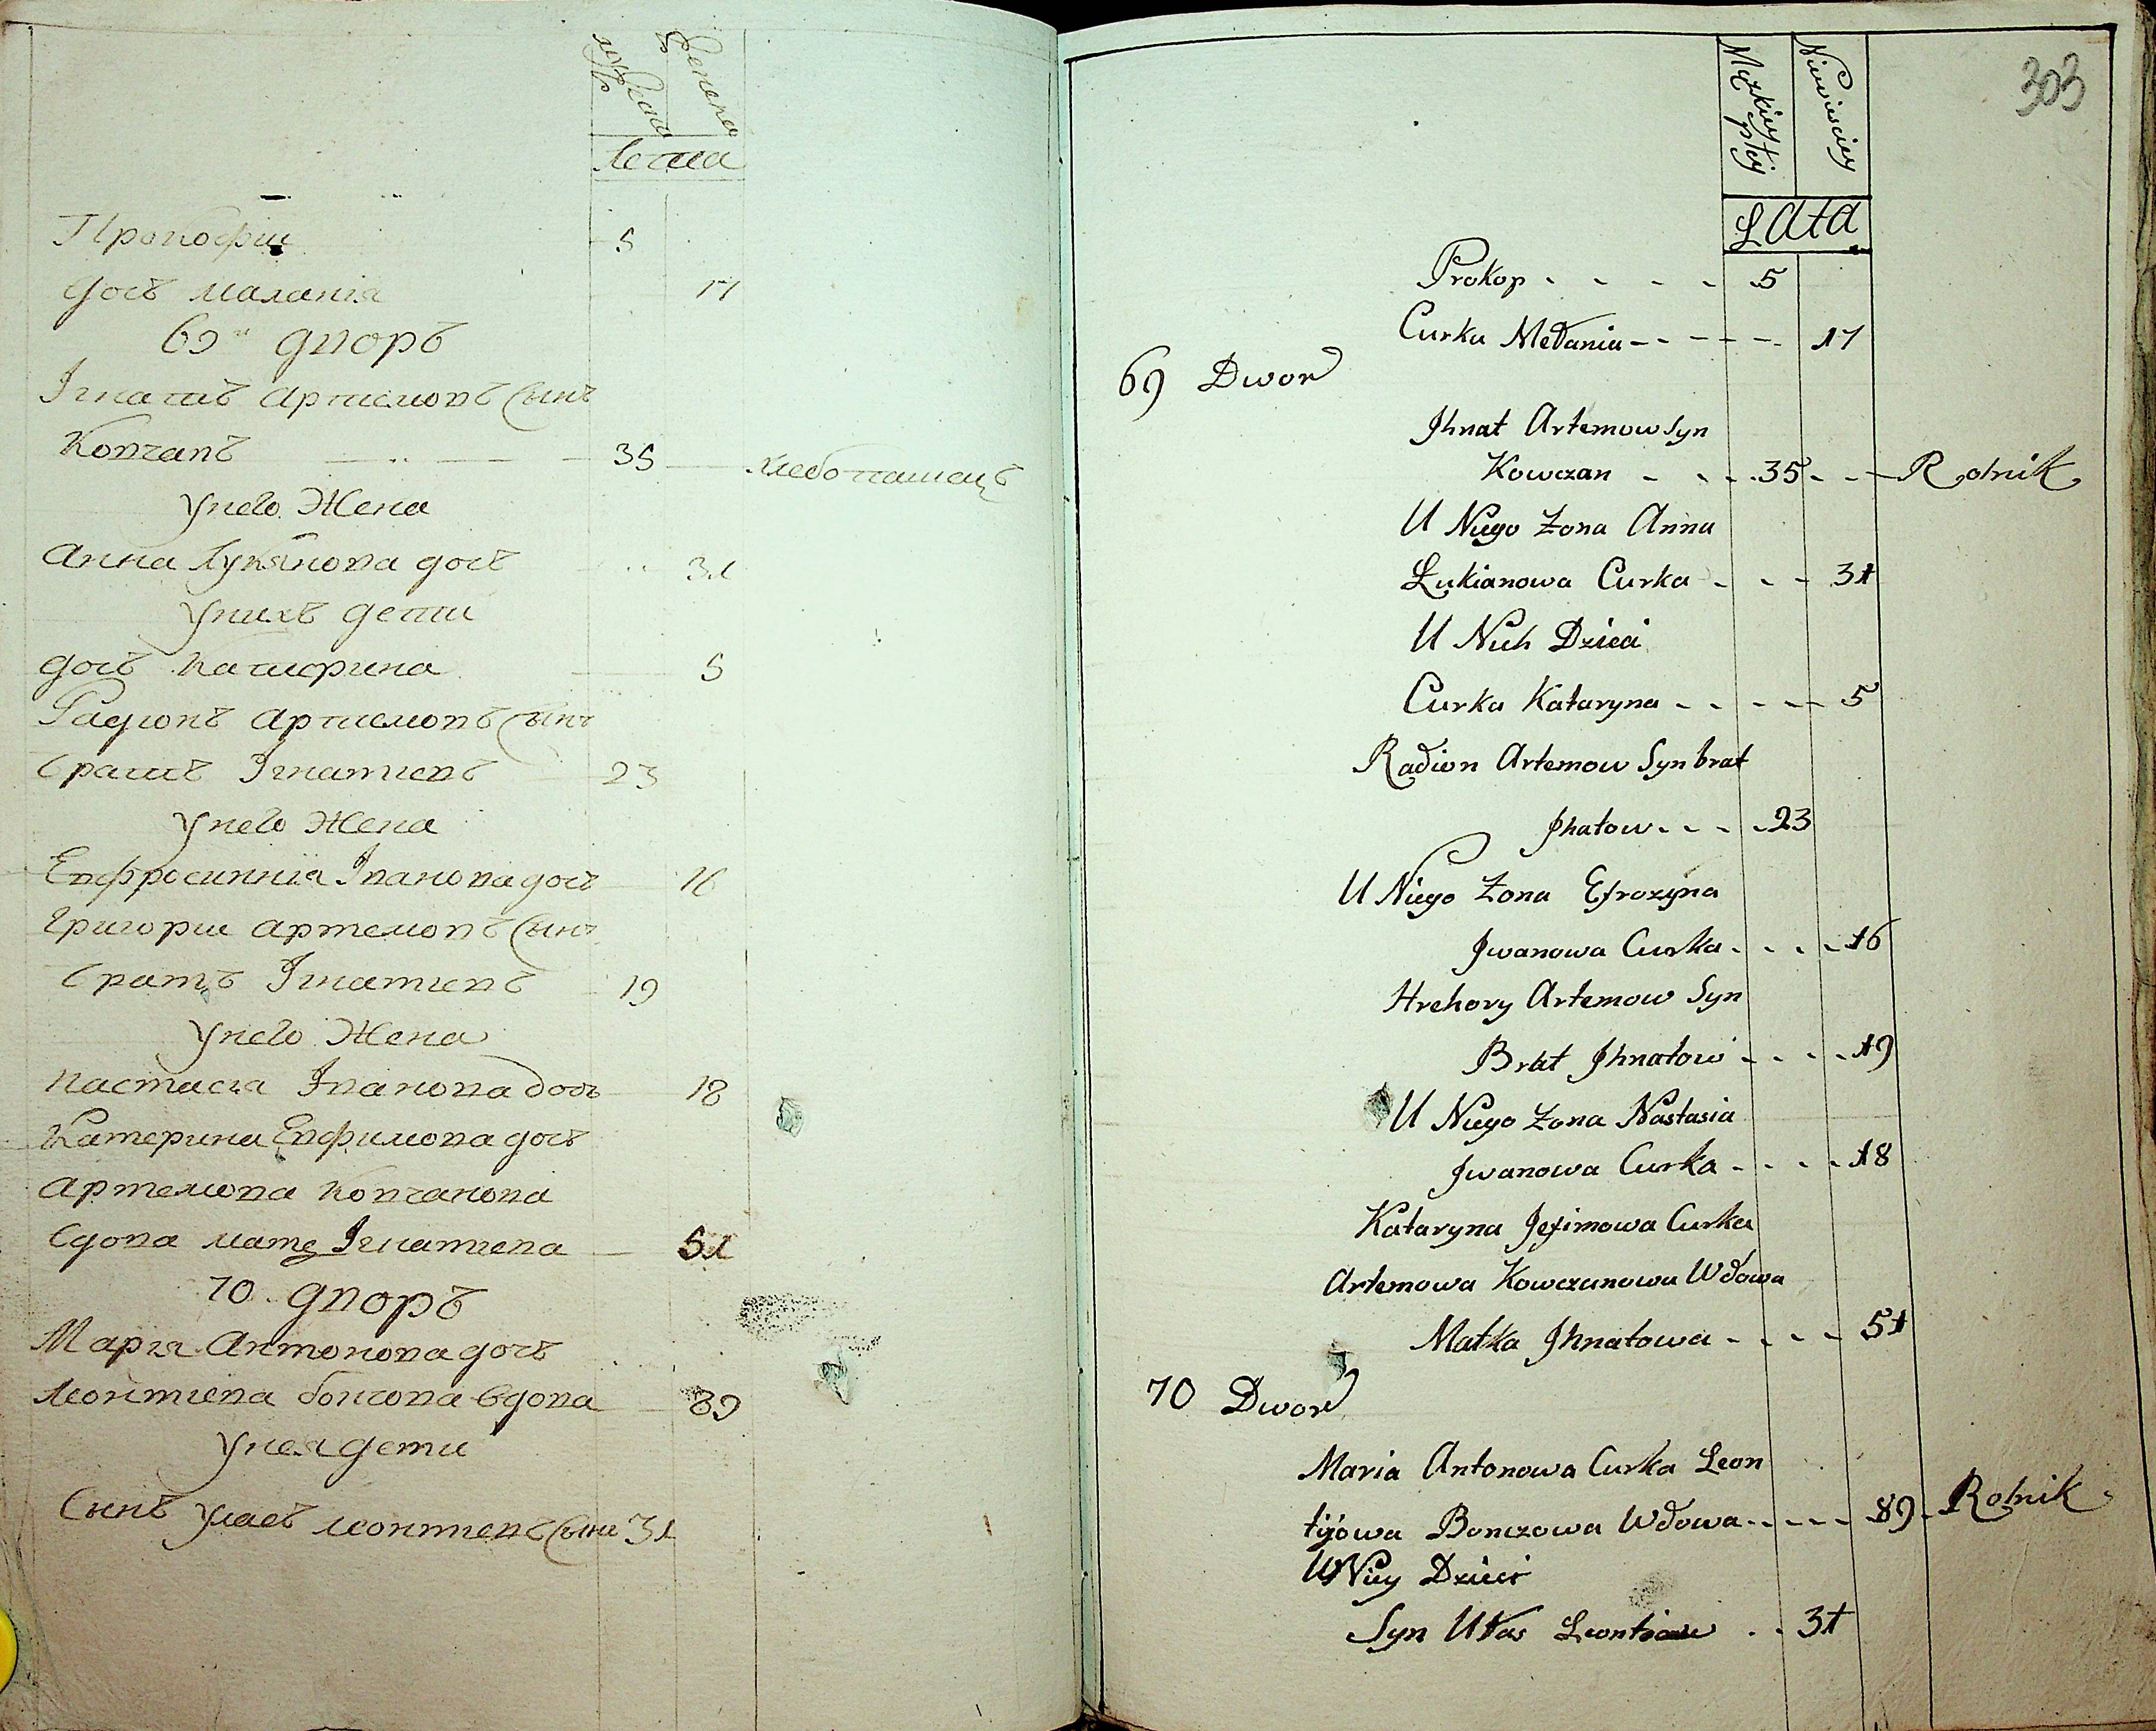 мужска
женска
Лета
Прокофии 5
дочь маланіа 17
69и дворъ
Ігнатъ Артиемовъ сынъ
Ковчанъ 35 хлебопашецъ
Унего Жена
Анна Лукянова дочь 31
Унихъ дети
дочь катирина 5
Радионъ Артиемовъ сынъ
братъ Ігнатиевъ 23
Унего Жена
Евфросинніа Іванова дочь 16
Григории Артемовъ сынъ
братъ Ігнатиевъ 19
Унего Жена
настасиа Іванова дочь 18
Катерина Евфимова дочь
Артемова ковчанова
вдова мать Ігнатиева 51
70 дворъ
Мария Антонова дочь
леонтиева бончова вдова 89
Унея дети
Сынъ улас леонтиевъ сынъ 31
303
Męzkiey płcy
Niewiesciey
LAtA
Prokop 5
Curka Mełania 17
69 Dwor
Jhnat Artemow Syn
Kowczan 35 Rolnik
U Niego Zona Anna
Łukianowa Curka 31
U Nich Dzieci
Curka Kataryna 5
Radion Artemow Syn brat
Jhatow 23
U Niego Zona Efrozyna
Jwanowa Curka 16
Hrehory Artemow Syn
Brat Jhnatow 19
U Niego Zona Nastasia
Jwanowa Curka 18
Kataryna Jefimowa Curka
Artemowa Kowczanowa Wdowa
Matka Jhnatowa 51
70 Dwor
Maria Antonowa Curka Leon
tijowa Bonczowa Wdowa 89 Rolnik
U Niey Dzieci
Syn Ułas Leontiow 31